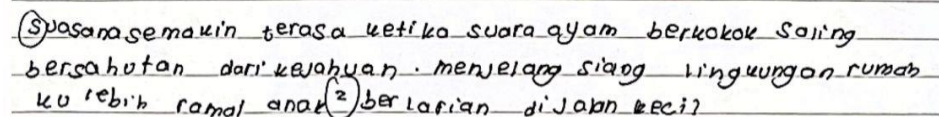 Suasana semakin terasa ketika suara ayam berkokok saling
bersahutan dari kejahuan. menjelang siang lingkungan rumah
ku lebih ramai anak 2 berlarian di jalan kecil